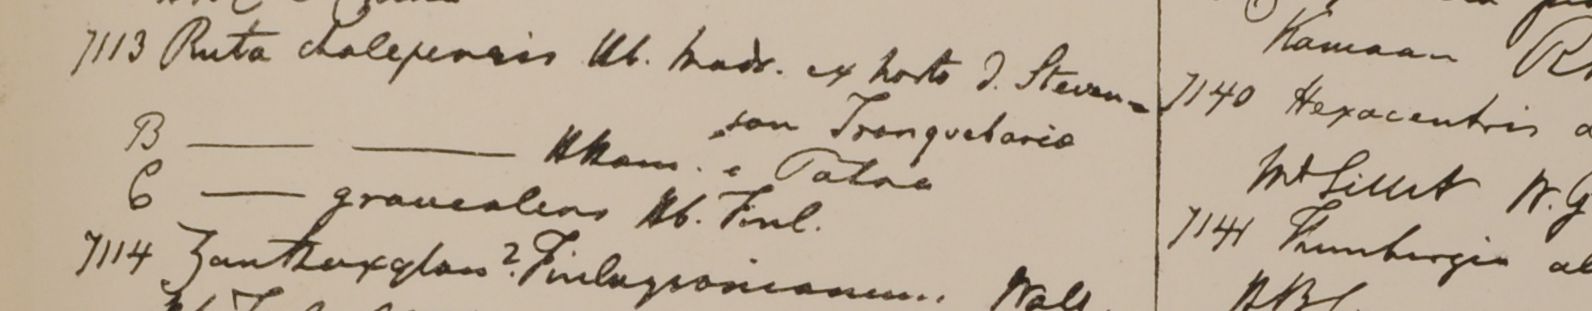 7113 Ruta chalepensis Hb. Madr. ex horto D. Steven-
son Tranquebaria
B — — HHam. e Patna
C — graveolens Hb. Finl.
7114 Zanthoxylon? Finlaysonianum. Wall.
Kamaon
7140 Hexacentris
Mt Sillet W. G
7141 Thunbergia al